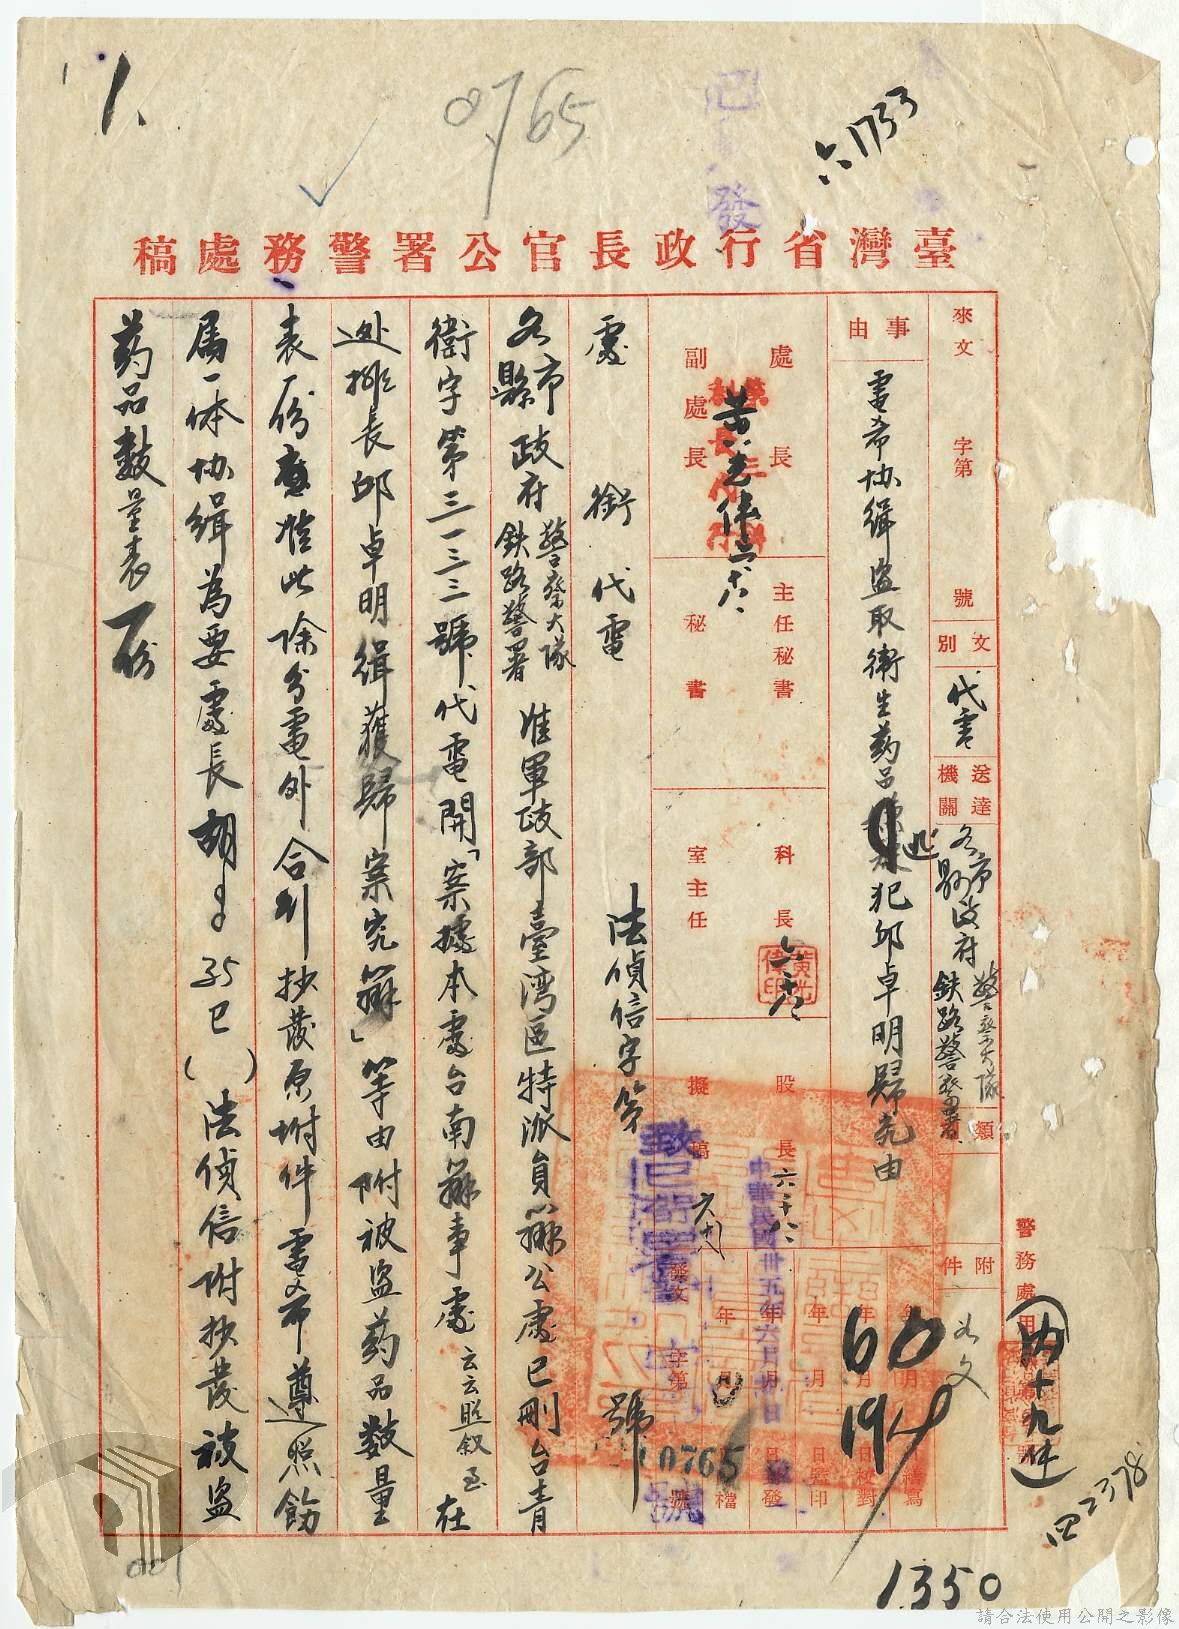 1.
0765
六1733
已
發
臺灣省行政長官公署警務處稿
來文 字第 號
文別 代電
送達機關 各縣市政府 警察大隊 鐵路警察署
類
附件 如文
事由 電希協緝盜取衛生药品逃犯邱卓明歸究由
處長
副處長
主任秘書
秘書
科長
室主任
股長
擬稿
中華民國卅五年六月 日
發文 字第 號
10765
檔
處銜代電 法偵信字第 號
各縣市政府 警察大隊 鉄路警署 准軍政部臺灣區特派員辦公處巳刪台青
衛字第三一三三號代電開「案據本處台南辦事處云云照叙至在
逃排長邱卓明緝獲歸案究辦」等由附被盜药品数量
表一份應准此除分電外合引抄發原坿件電希遵照飭
屬一体协緝為要處長胡〇〇35巳( )法偵信附抄發被盜
药品數量表一份
警務處用
內十九件
四2378
1350
001
請合法使用公開之影像